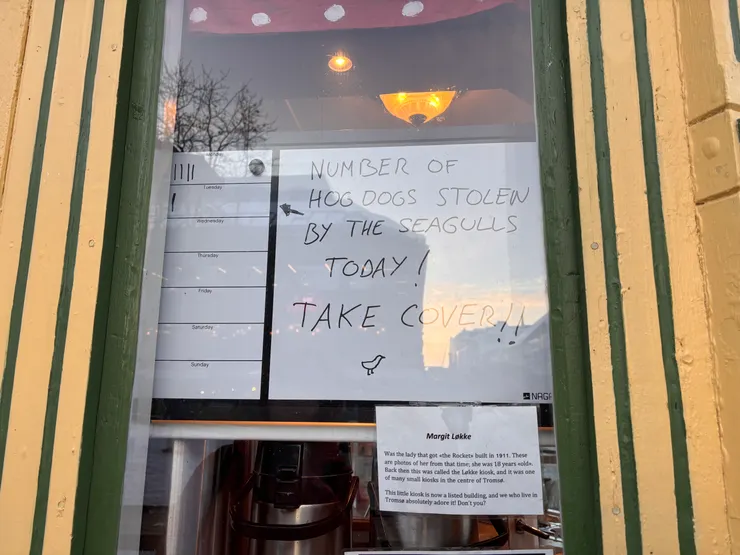 ||||
Tuesday
|
Wednesday
Thursday
Friday
Saturday
Sunday
NUMBER OF
HOG DOGS STOLEN
BY THE SEAGULLS
TODAY!
TAKE COVER!!
Margit Løkke
Was the lady that got «the Rocket» built in 1911. These
are photos of her from that time, she was 18 years «old».
Back then this was called the Løkke kiosk, and it was one
of many small kiosks in the centre of Tromsø.
This little kiosk is now a listed building, and we who live in
Tromsø absolutely adore it! Don't you?